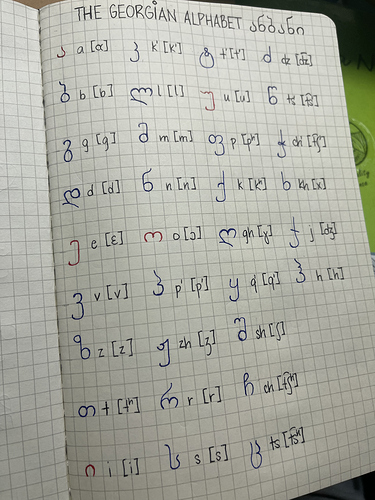 THE GEORGIAN ALPHABET ანბანი
ა a [ɑ] კ k' [k'] ტ t' [t'] ძ dz [d͡z]
ბ b [b] ლ l [l] უ u [u] წ ts' [t͡s']
გ g [g] მ m [m] ფ p [pʰ] ჭ ch' [t͡ʃ']
დ d [d] ნ n [n] ქ k [kʰ] ხ kh [x]
ე e [ɛ] ო o [ɔ] ღ gh [ɣ] ჯ j [d͡ʒ]
ვ v [v] პ p' [p'] ყ q' [q'] ჰ h [h]
ზ z [z] ჟ zh [ʒ] შ sh [ʃ]
თ t [tʰ] რ r [r] ჩ ch [t͡ʃʰ]
ი i [i] ს s [s] ც ts [t͡sʰ]